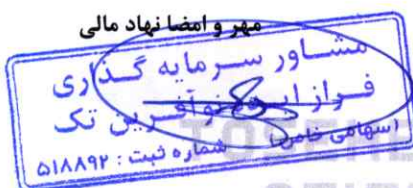 مهر و امضا نهاد مالی
مشاور سرمایه گذاری
فراز ایده نوآفرین تک
(سهامی خاص) شماره ثبت : ۵۱۸۸۹۲
TOSEHE